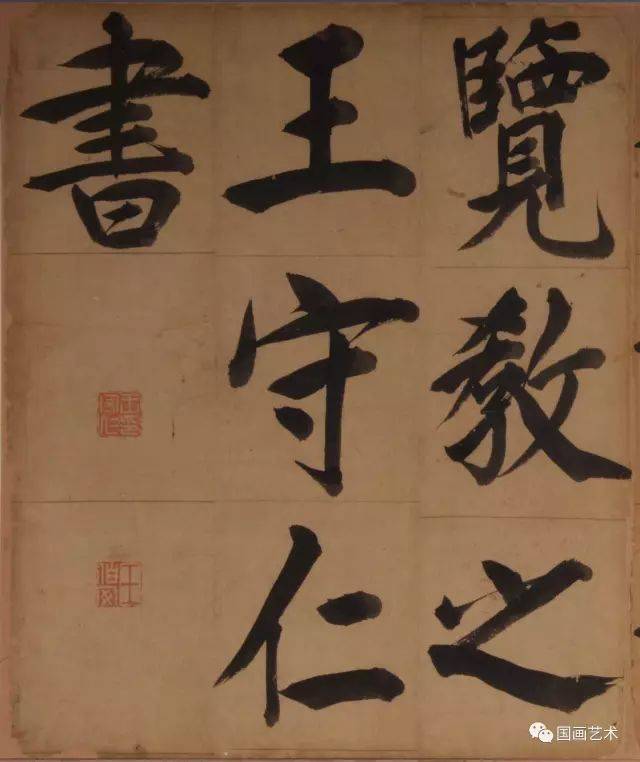 覽教之
王守仁
書
国画艺术